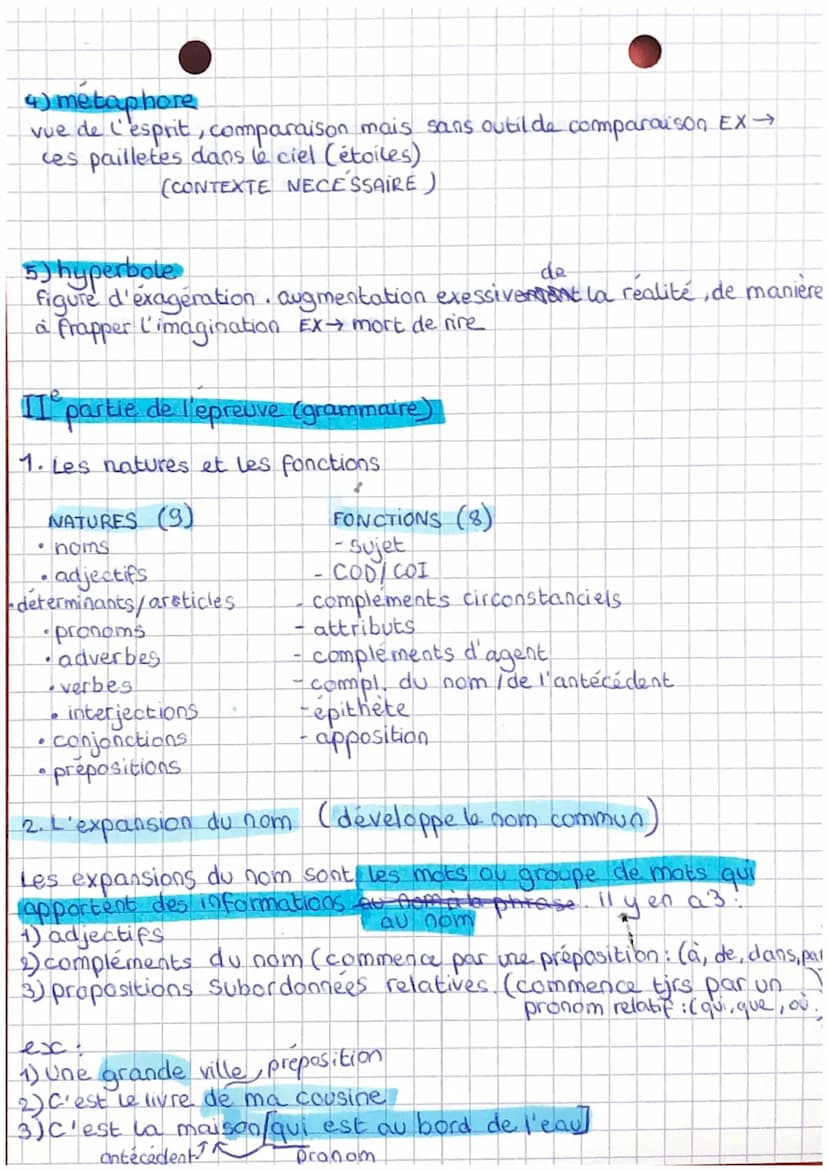 4) métaphore
vue de l'esprit, comparaison mais sans outil de comparaison EX →
ces pailletes dans le ciel (étoiles)
(CONTEXTE NECESSAIRE)
5) hyperbole
de
figure d'éxagération. augmentation exessivement la réalité, de manière
à frapper l'imagination EX → mort de rire
IIe partie de l'épreuve (grammaire)
1. Les natures et les fonctions
NATURES (9) FONCTIONS (8)
• noms - sujet
• adjectifs - COD/COI
• déterminants/articles - compléments circonstanciels
• pronoms - attributs
• adverbes - compléments d'agent
• verbes - compl. du nom / de l'antécédent
• interjections - épithète
• conjonctions - apposition
• prépositions
2. L'expansion du nom (développe le nom commun)
Les expansions du nom sont les mots ou groupe de mots qui
apportent des informations au nom à la phrase. il y en a 3 :
au nom
1) adjectifs
2) compléments du nom (commence par une préposition : (à, de, dans, par
3) propositions subordonnées relatives. (commence tjrs par un
pronom relatif : (qui, que, où.
ex :
1) Une grande ville préposition
2) C'est le livre de ma cousine
3) C'est la maison [qui est au bord de l'eau]
antécédent pronom